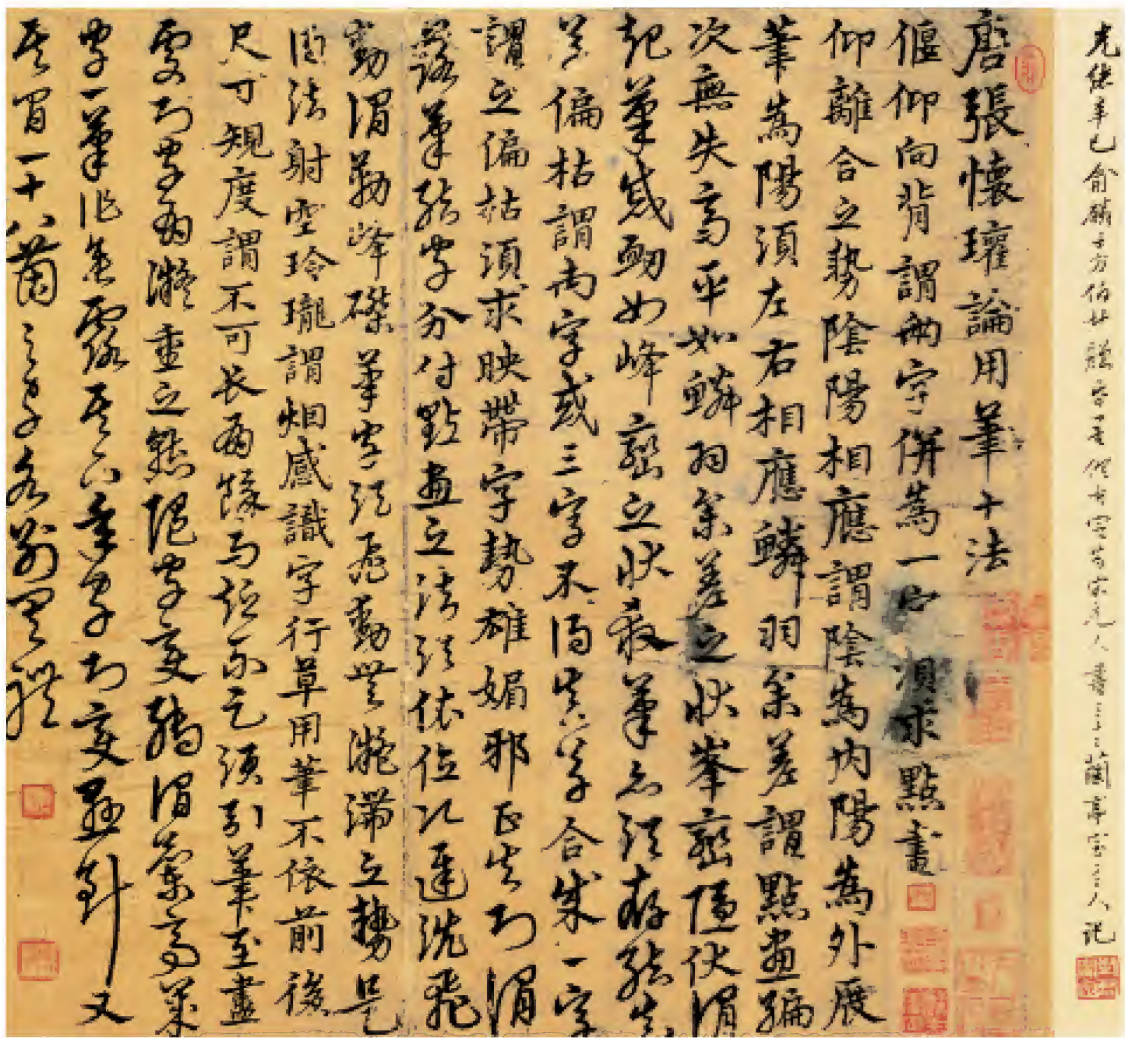 光緒辛巳俞麟士方伯廿 宋元人書 蘭亭室主人記
唐張懷瓘論用筆十法
偃仰向背謂兩字併為一字須求點畫
仰離合之勢陰陽相應謂陰為內陽為外展
筆為陽須左右相應鱗羽參差謂點畫編
次無失高平如鱗羽參差之狀峯巒隱伏謂
起筆蹙衄如峰巒之狀殺筆亦須存結
真偏枯謂兩字或三字不得真草合成一字
謂之偏枯須求映帶字勢雄媚邪正失則謂
落筆結字分付點畫之法須依位次遲澁飛
動謂勒峰磔筆字須飛動無凝滯之勢是
得法射空玲瓏謂烟感識字行草用筆不依前後
尺寸規度謂不可长有餘与短不足須引筆至盡
處則字有凝重之態隨字變轉謂蘭亭歲
字一筆作垂露其下年字則變懸針又
其間一十八箇之字各別有體